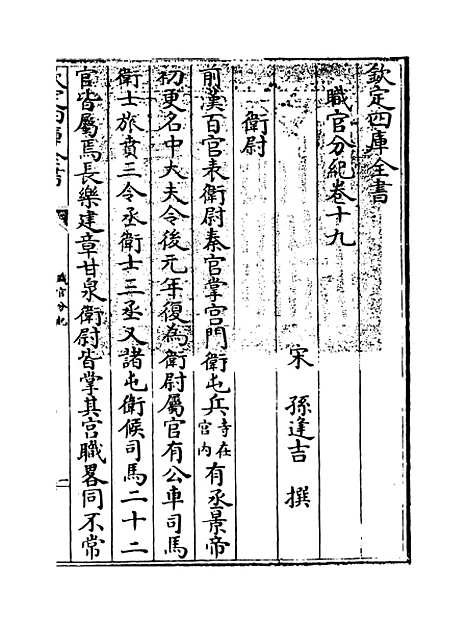 欽定四庫全書
職官分紀卷十九
宋 孫逢吉 撰
衛尉
前漢百官表衛尉秦官掌宫門衛屯兵寺在宫内有丞景帝
初更名中大夫令後元年復為衛尉屬官有公車司馬
衛士旅賁三令丞衛士三丞又諸屯衛候司馬二十二
官皆屬焉長樂建章甘泉衛尉皆掌其宫職畧同不常
職官分紀